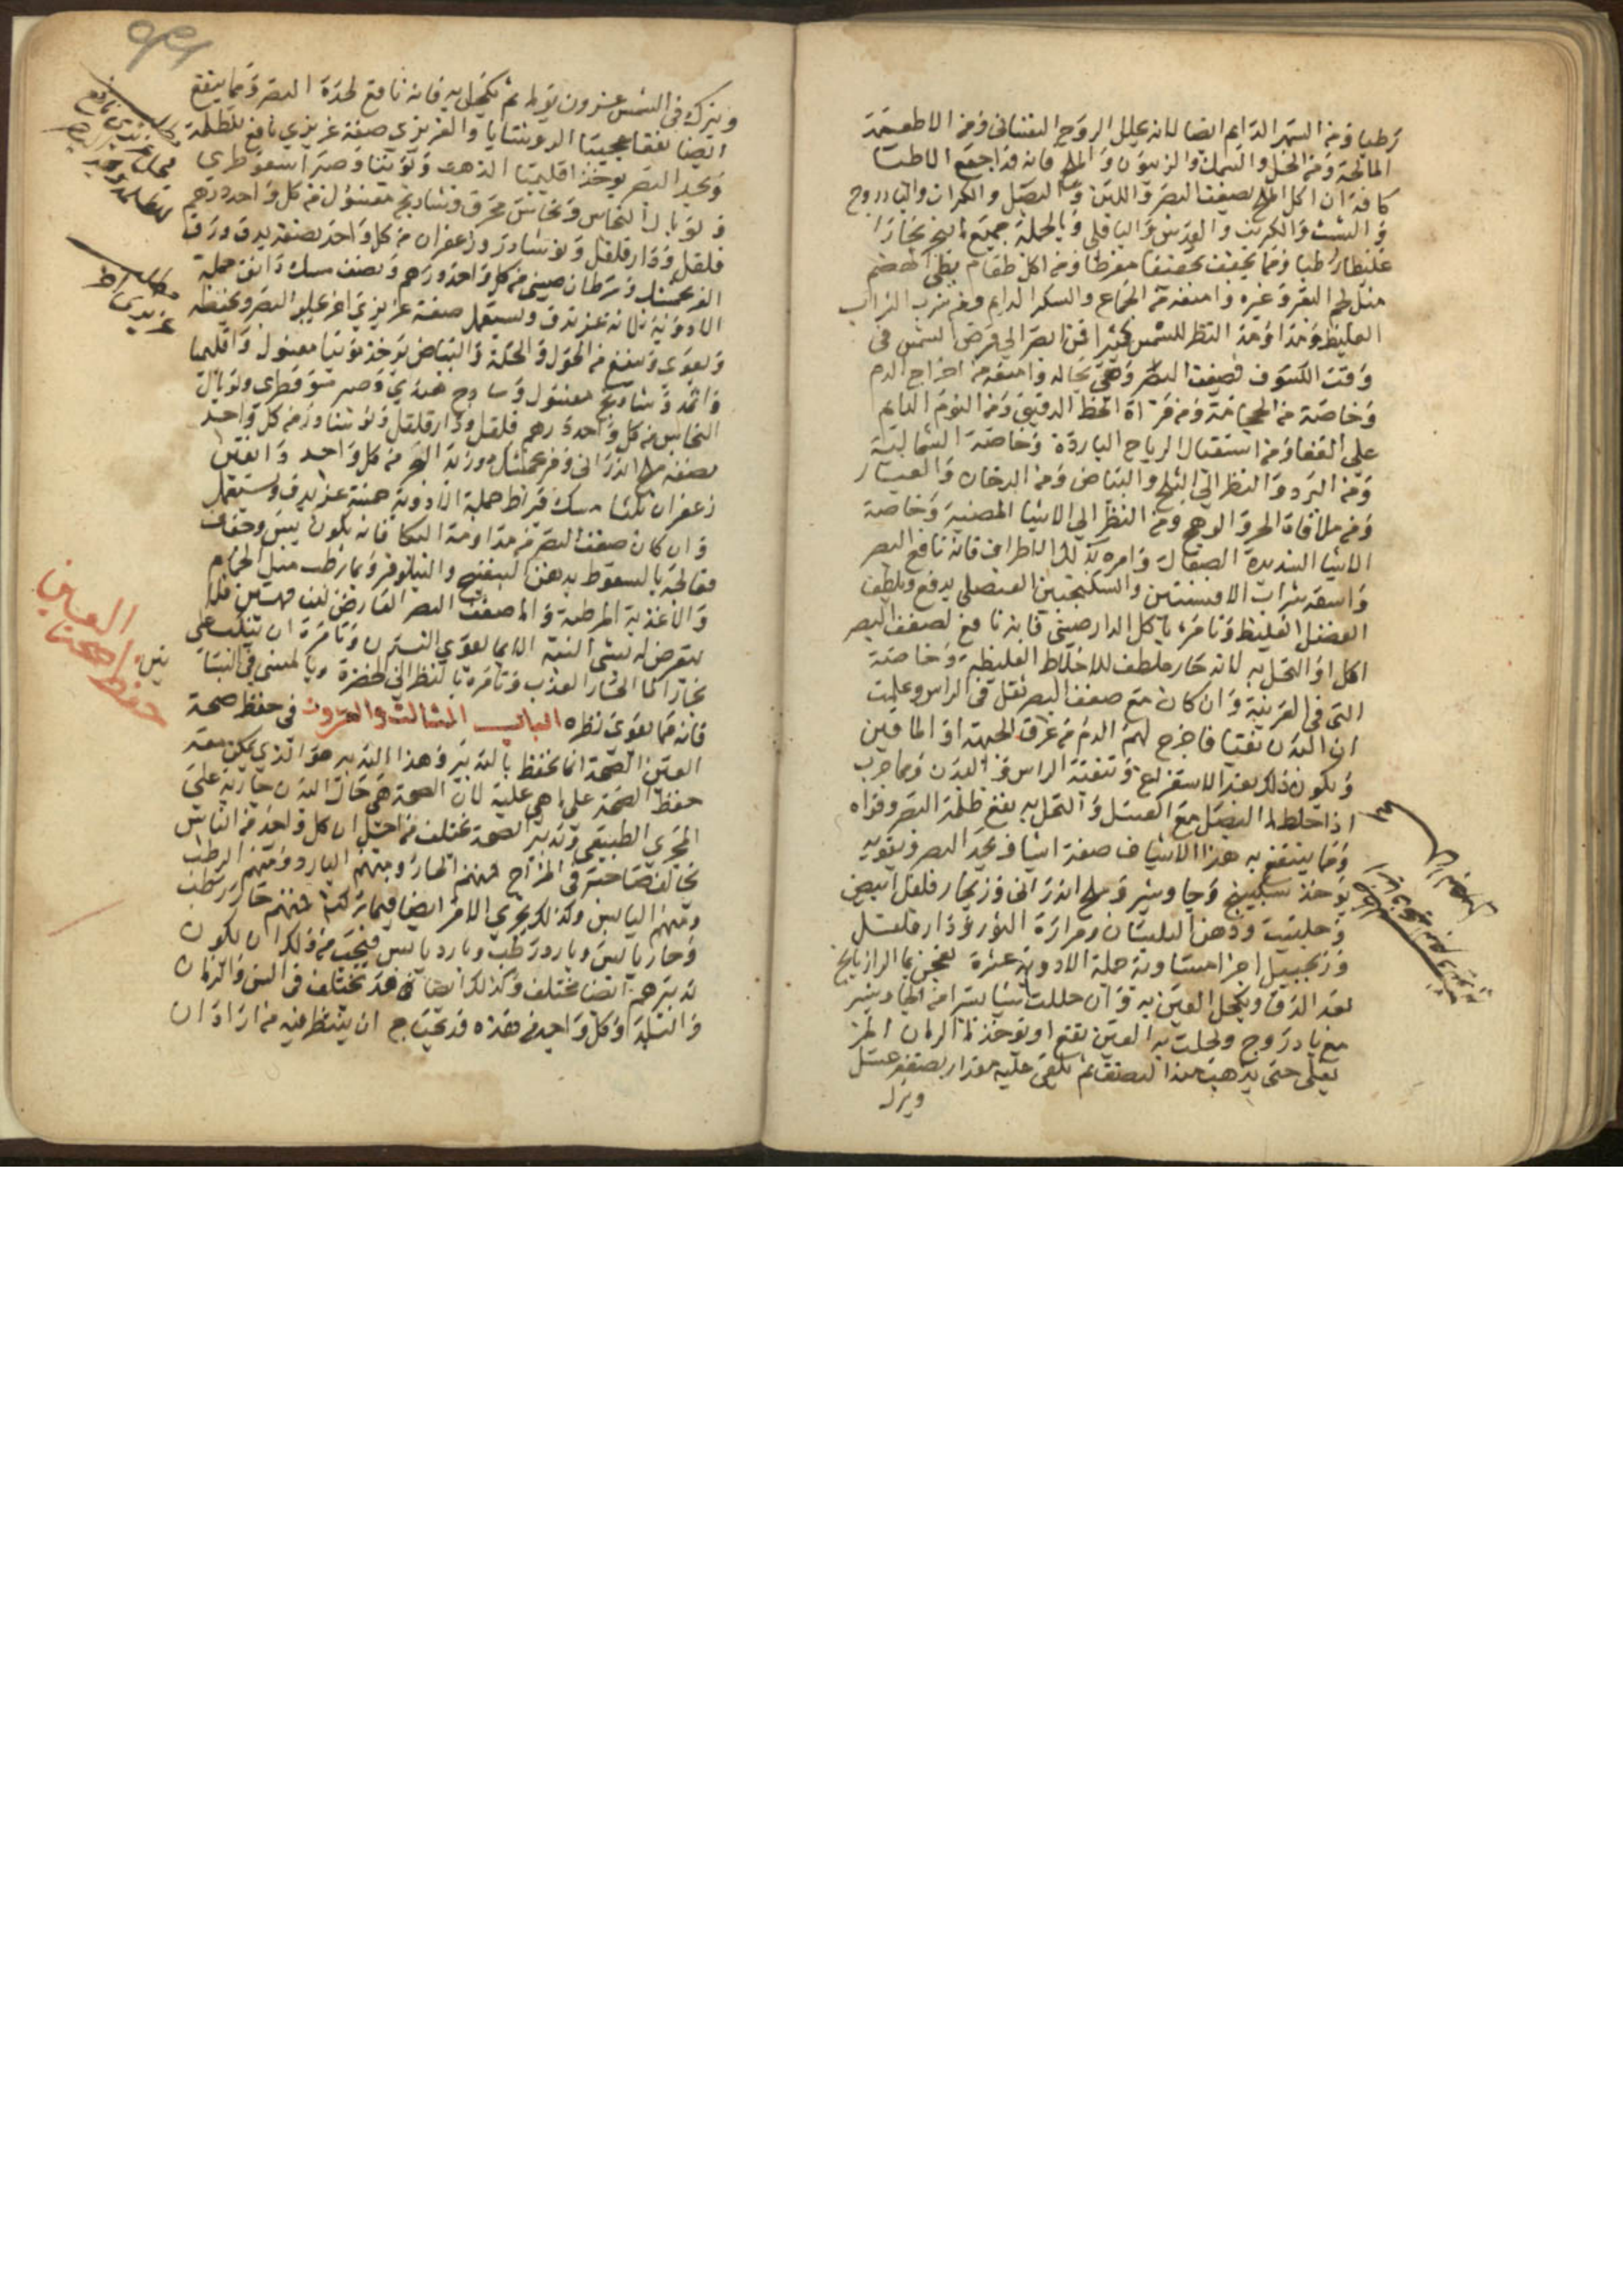 رطبا ومن السهر الدايم ايضا لانه يحلل الروح النفساني ومن الاطعمة
المالحة ومن الخل والسمك والزيتون والملح فانه قد اجمع الاطبا
كافة ان اكل الملح يضعف البصر واللبن وعن البصل والكراث والبادروج
والشبث والكرنب والعدس والباقلي وبالجملة جميع ما يبخر بخارا
غليظا رطبا ومما يجفف تجفيفا مفرطا ومن اكل طعام بطي الهضم
مثل لحم البقر وغيره وامنعه من الجماع والسكر الدايم ومن شرب الشراب
الغليظ ومن النظر للشمس كثيرا فمن ابصر الي قرص الشمس في
وقت الكسوف ضعف البصر وبقي بحاله وامنعه من اخراج الدم
وخاصة من الحجامة ومن قراة الخط الدقيق ومن النوم الدايم
علي القفا ومن استقبال الرياح الباردة وخاصة الشمالية
ومن البرد والنظر الي الثلج والبياض ومن الدخان والغبار
ومن ملاقاة الحر والوهج ومن النظر الي الاشيا المضية وخاصة
الاشيا الشديدة الصقالة وامره بدلك الاطراف فانه نافع للبصر
واسقه شراب الافسنتين والسكنجبين العنصلي يدفع ويلطف
الفضل الغليظ وتامره باكل الدارصيني فانه نافع لضعف البصر
اكلا او اكتحل به لانه حار ملطف للاخلاط الغليظة وخاصة
التي في القرنية وان كان مع ضعف البصر ثقل في الراس وعلمت
ان البدن نقيا فاخرج لهم الدم من عرق الجبهة او الماقين
ويكون ذلك بعد الاستفراغ وتنقية الراس والبدن ومما جرب
اذا خلط ما البصل مع العسل واكتحل به نفع ظلمة البصر وقواه
ومما ينتفع به هذا الاشياف صفة اشياف يحد البصر ويقويه
يوخذ سكبينج وجاوشير وملح اندراني وزنجار وفلفل ابيض
وحلتيت ودهن البلسان ومرارة الثور ودارفلفل
وزنجبيل اجزا متساوية جملة الادوية عشرة يعجن بما الرازيانج
بعد الدق ويكحل العين به وان حللت شيا يسيرا من الجاوشير
مع بادروج وكحلت به العين نفع او يوخذ ما الرمان المز
يغلي حتي يذهب منه النصف ثم يلقي عليه مقدار نصفه عسل
ويترك
ويترك في الشمس عشرون يوما ثم تكحل به فانه نافع لحدة البصر ومما ينفع
ايضا نفعا عجيبا الروشنايا والعزيزي صفة عزيزي نافع للظلمة
ويحد البصر يوخذ اقليميا الذهب وتوتيا وصبر اسقوطري
وتوبال النحاس ونحاس محرق وشادنج مغسول من كل واحد درهم
فلفل ودارفلفل ونوشادر وزعفران من كل واحد نصفه يدق ورق
القرنفل وسرطان صيني من كل واحد درهم ونصف مسك دانق جملة
الادوية ثلاثة عشر تدق وتستعمل صفة عزيزي اخر يجلو البصر ويحفظه
ويقوي وينفع من الحول والحكة والبياض يوخذ توتيا مغسول واقليميا
واثمد وشادنج مغسول وسادج هندي وصبر سقوطري وتوبال
النحاس من كل واحد درهم فلفل ودارفلفل ونوشادر من كل واحد
نصفه ملح اندراني وقرنفل وزبد البحر من كل واحد دانقين
زعفران ثلثا مسك قيراط جملة الادوية خمسة عشر يدق ويستعمل
وان كان ضعف البصر من مداومة البكا فانه يكون يبس وجفاف
فعالجه بالسعوط بدهن البنفسج والنيلوفر وبما يرطب مثل الحمام
والاغذية المرطبة والمضعف البصر العارض
يتعرض له بشي البتة انما يقوي البدن وتامره ان ينكب علي
بخار الما الحار العذب وتامره بالنظر الي الخضرة وبالمشي في البساتين
فانه مما يقوي نظره الباب الثالث والعشرون في حفظ صحة
العين الصحة انما تحفظ بالتدبير وهذا التدبير هو الذي يمكن معه
حفظ الصحة علي ما هي عليه لان الصحة هي حال البدن جارية علي
المجري الطبيعي وتدبير الصحة تختلف من اجل ان كل واحد من الناس
يخالف صاحبه في المزاج فمنهم الحار ومنهم البارد ومنهم الرطب
ومنهم اليابس وكذلك يجري الامر ايضا فيما تركب منهم حار رطب
وحار يابس وبارد رطب وبارد يابس فيجب من ذلك ان يكون
تدبيرهم ايضا مختلف وكذلك ايضا قد تختلف في السن والزمان
والبلد وكل واحد من هذه قد يحتاج ان ينظر فيه من اراد ان
حفظ صحة
العين